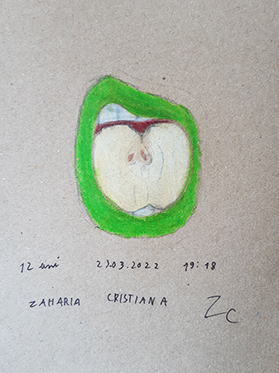 12 ani 23.03.2022 19:18
ZAHARIA CRISTIANA ZC